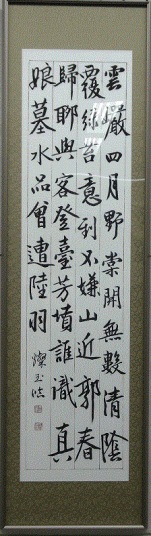 雲巖四月野棠開無數清陰
覆綠苔意到不嫌山近郭春
歸聊與客登臺芳墳誰識真
娘墓水品曾遭陸羽